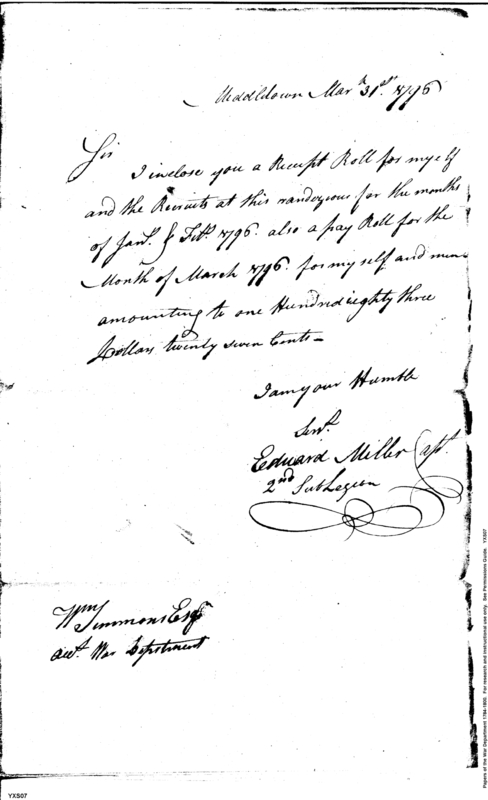 Middletown Mar.h 31st. 1796
Sir
I inclose you a Receipt Roll for myself
and the Recruits at this randezvous for the months
of Jany. & Feby. 1796. also a pay Roll for the
Month of March 1796. for my self and men
amounting to one Hundred eighty three
Dollars twenty seven Cents—
I am your Humble
Servt.
Edward Miller Capt.
2nd SubLegion
Wm Simmons Esqr
Acct. War Department
YXS07
Papers of the War Department 1784-1800. For research and instructional use only. See Permissions Guide. YXS07